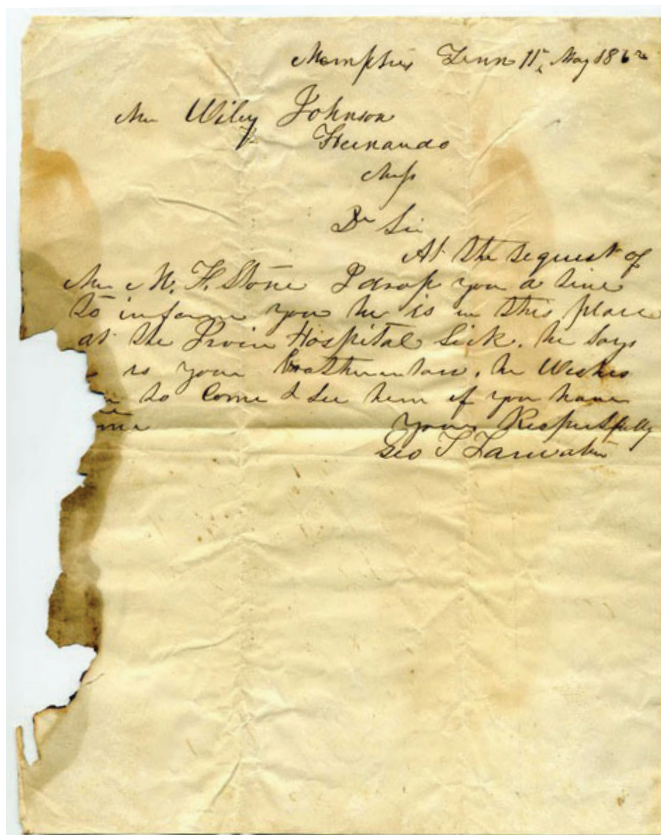 Memphis Tenn 11th May 1862
Mr Wiley Johnson
Hernando
Miss
Dr Sir
At the request of
Mr M. F. Stone I drop you a line
to inform you he is in this place
at the Irvin Hospital Sick. he Says
is your Brotherinlaw. he Wishes
to Come & See him if you have
Yours Respectfully
Geo T Tarwater